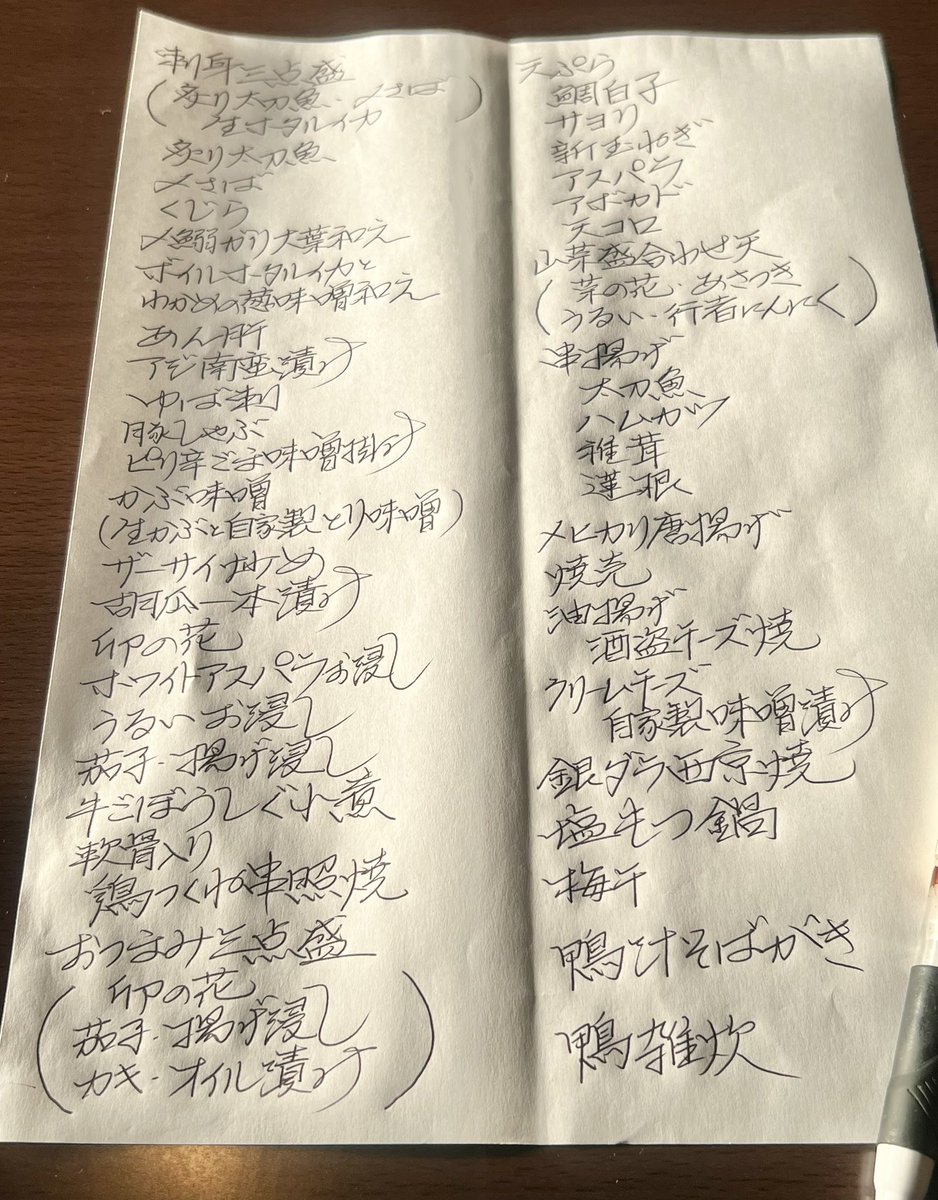 刺身三点盛
(炙り太刀魚・〆さば
生ホタルイカ)
炙り太刀魚
〆さば
くじら
〆鰯がり大葉和え
ボイルホタルイカと
わかめの酢味噌和え
あん肝
アジ南蛮漬け
ゆば刺
豚しゃぶ
ピリ辛ごま味噌掛け
かぶ味噌
(生かぶと自家製とり味噌)
ザーサイ
胡瓜一本漬け
卯の花
ホワイトアスパラお浸し
うるいお浸し
茄子・揚げ浸し
牛ごぼうしぐれ煮
軟骨入り
鶏つくね串照焼
おつまみ三点盛
(卯の花
茄子・揚げ浸し
カキ・オイル漬け)
天ぷら
鯛白子
サヨリ
新玉ねぎ
アスパラ
アボカド
天コロ
山菜盛合わせ天
(菜の花・あさつき
うるい・行者にんにく)
串揚げ
太刀魚
ハムカツ
椎茸
蓮根
メヒカリ唐揚げ
焼売
油揚げ
酒盗チーズ焼
クリームチーズ
自家製味噌漬け
銀ダラ西京焼
塩もつ鍋
梅干
鴨汁そばがき
鴨雑炊